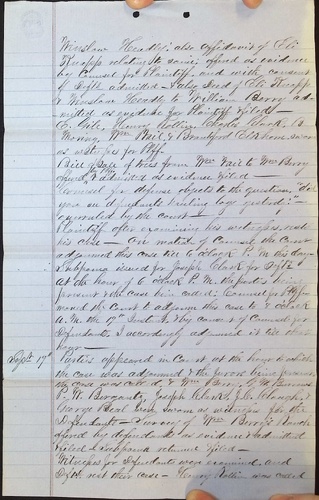 Winslow Headly; also affidavit of Eli
relating to same; offered as evidence
by Counsel for Plaintiff, and with consent
of Deft admitted – also deed of Eli
& Winslow Headly to William Berry ad-
mitted as evidence for plaintiff & filed –
Wm Bail, & Bradford sworn
as witnesses for Plff.
Bill of Sale of trees from Wm Vail to Wm Berry
offered & admitted as evidence & filed –
Counsel for defense objects to the question "did
you see defendants hauling logs yesterday?" –
overruled by the court –
Plaintiff after examining his witnesses, rests
his case – On motion of Counsel the Court
adjourned this case till 6 o'clock P. M. this day –
Subpoena issued for Joseph Clark for Deft
At the hour of 6 o'clock P. M. the parties being
present & the case being called; Counsel for Plff
moved the Court to adjourn this case to 8 o'clock
A. M. the 17th by consent of Counsel for
Defendants I accordingly adjourned it till above
hour –
Sept 17th Parties appeared in Court at the hour to which
the case was adjourned & the jurors being present
the case was called, & Wm Berry,
P. W. Joseph Clark, J. C. Clough, &
George Beal being sworn as witnesses for the
Defendants – Survey of Wm Berry's Ranch
offered by defendants as evidence & admitted
& filed & Subpoena returned & filed –
Witnesses for Defendants were examined, and
Deft rest their case – Henry was called